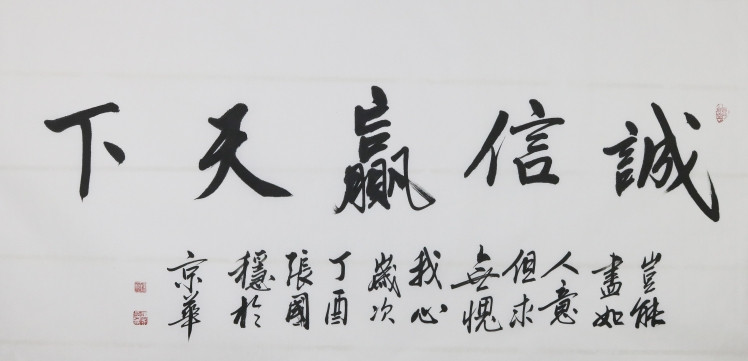 誠信贏天下
豈能
盡如
人意
但求
無愧
我心
歲次
丁酉
張國
穩於
京華